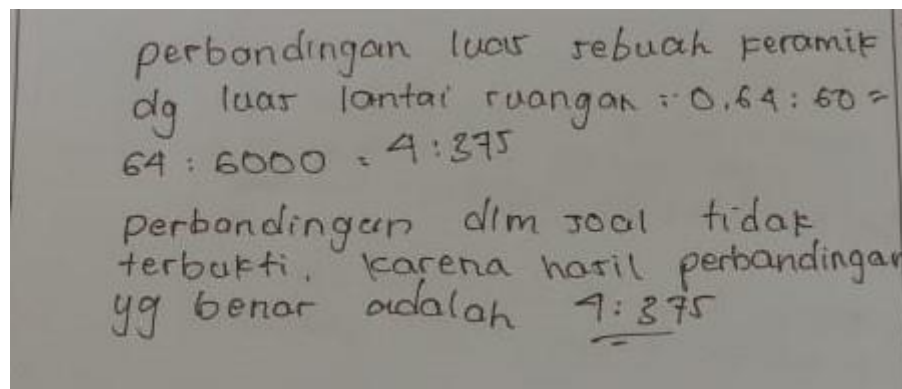 perbandingan luas sebuah keramik
dg luas lantai ruangan = 0,64 : 60 =
64 : 6000 = 4 : 375
perbandingan dlm soal tidak
terbukti. karena hasil perbandingan
yg benar adalah 4 : 375